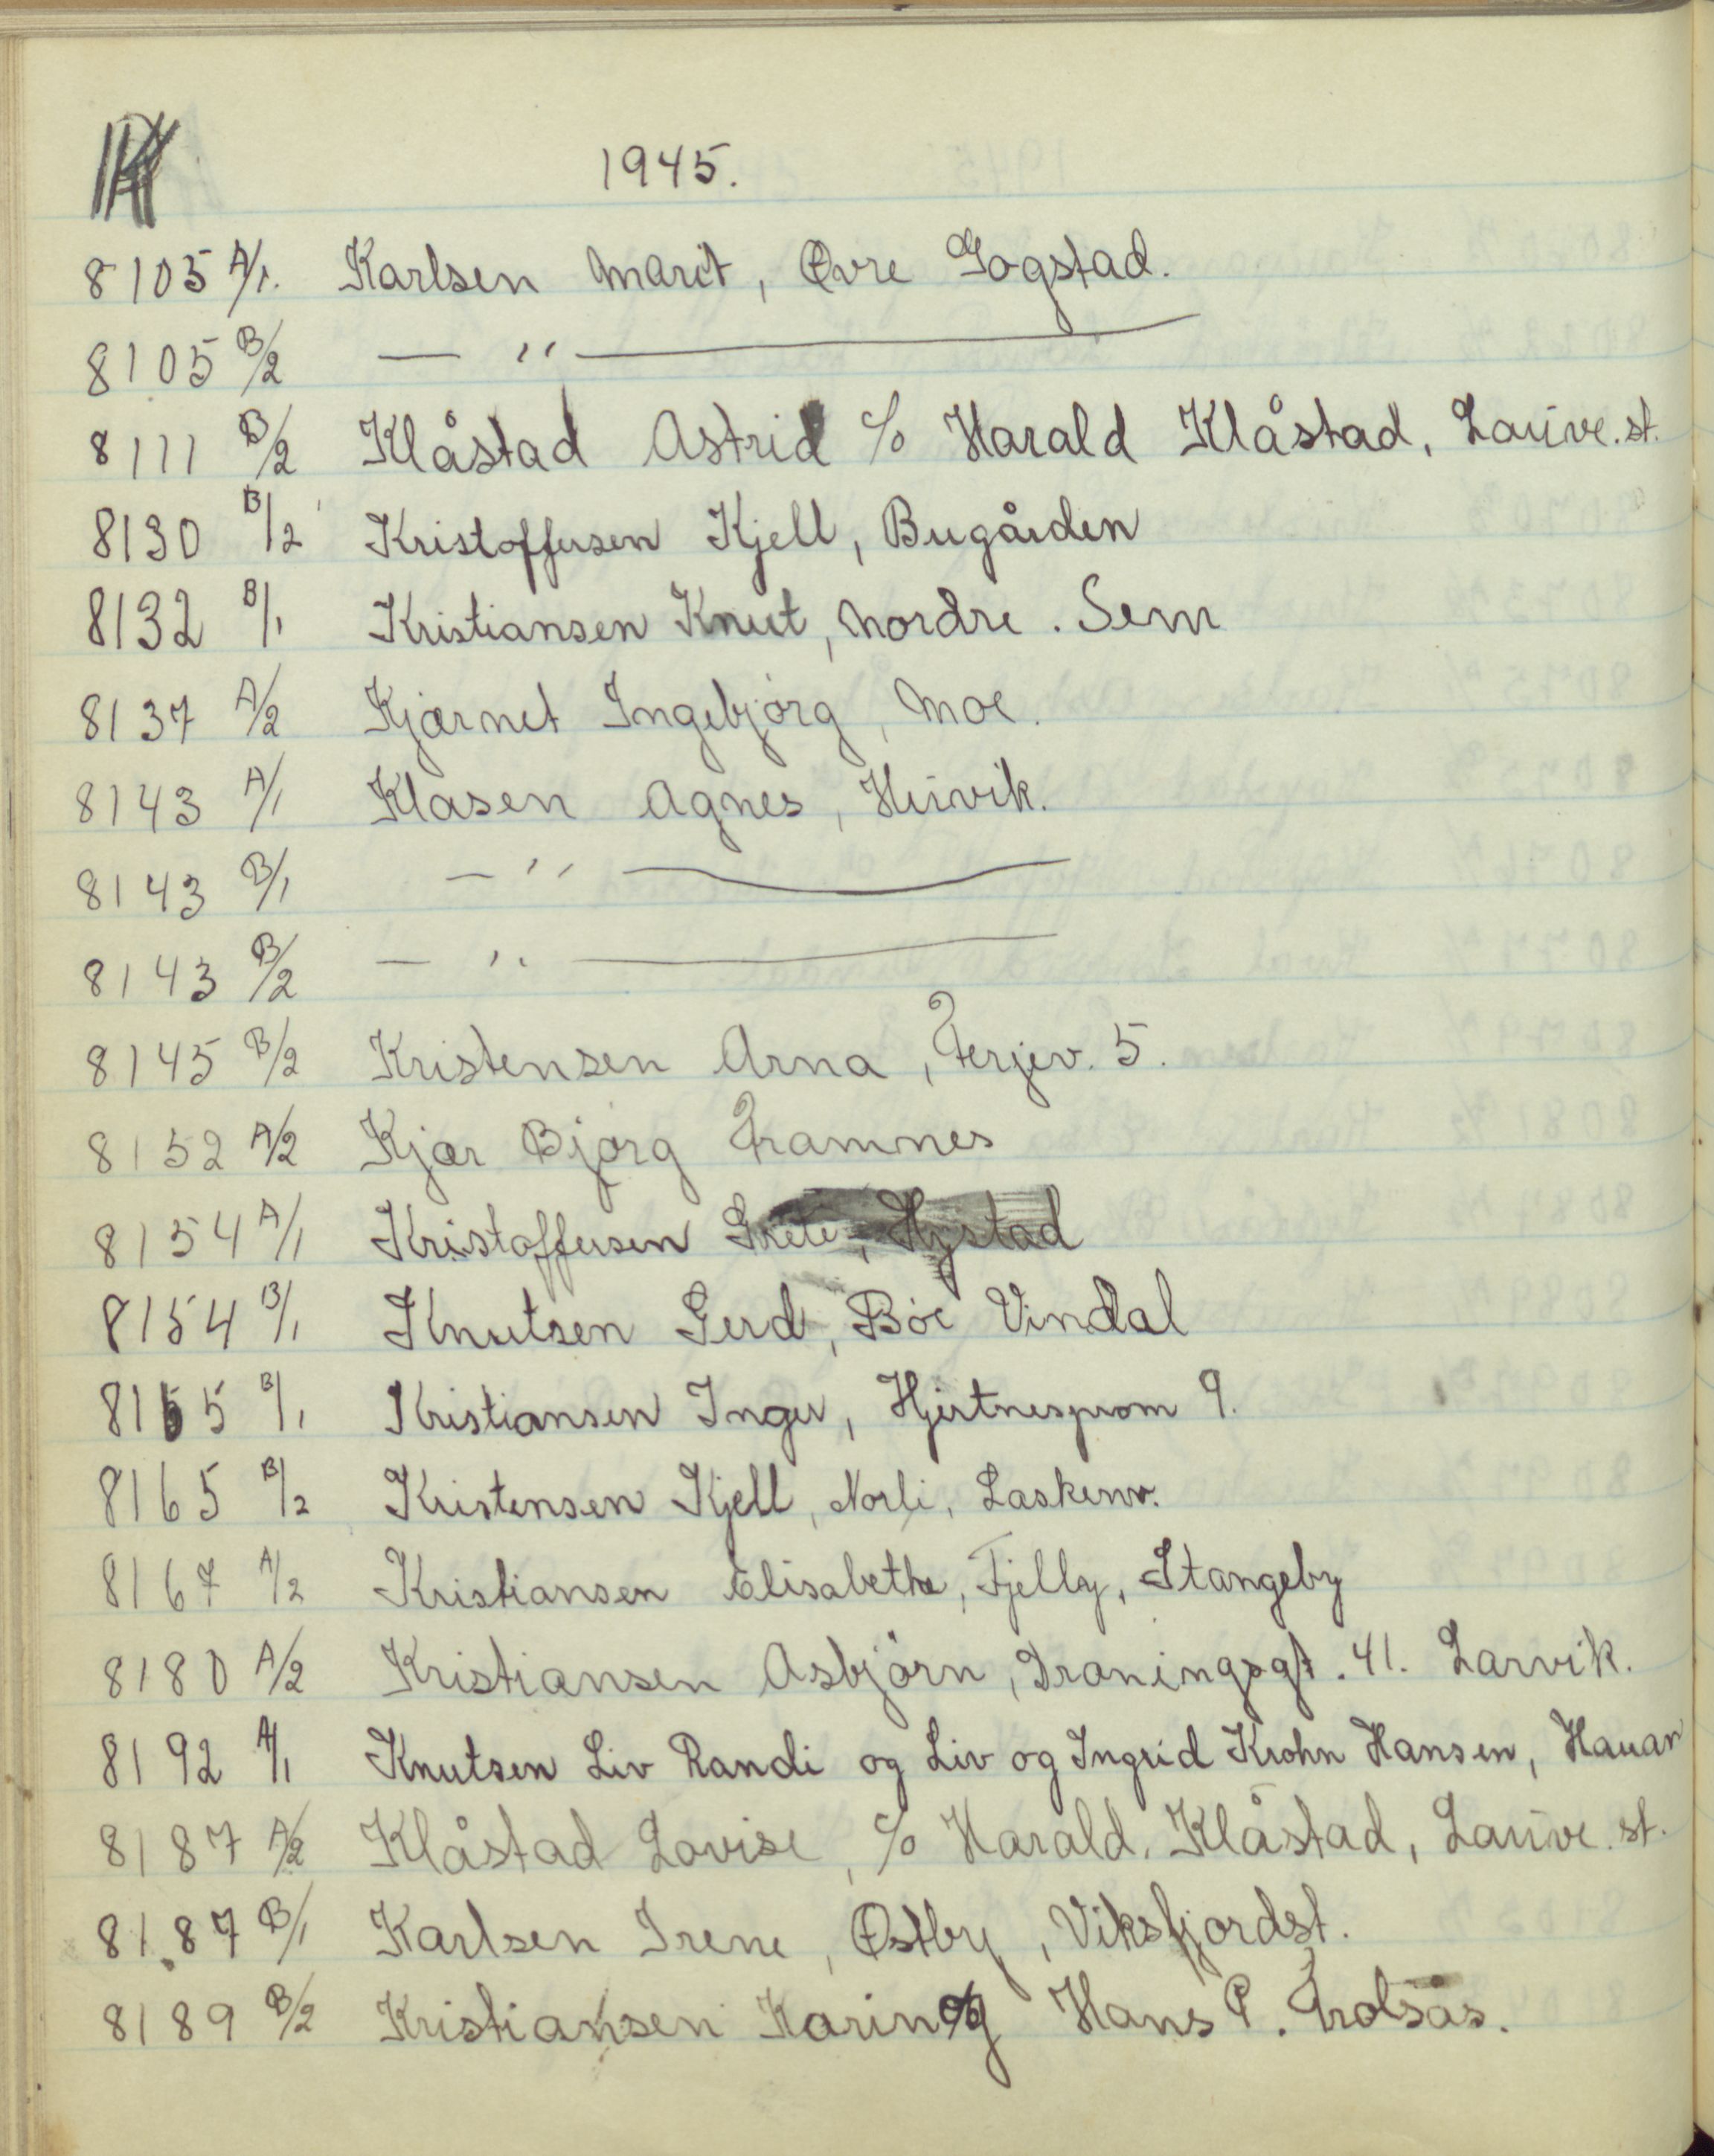 K
1945.
8105 A/1. Karlsen Marit, Øvre Gogstad.
8105 B/2 — " —
8111 B/2 Klåstad Astrid c/o Harald Klåstad, Lauve. st.
8130 B/2 Kristoffersen Kjell, Bugården
8132 B/1 Kristiansen Knut, Nordre. Sem
8137 A/2 Kjærnet Ingebjørg, Moe.
8143 A/1 Klasen Agnes, Huvik.
8143 B/1 — " —
8143 B/2 — " —
8145 B/2 Kristensen Arna, Ferjev. 5.
8152 A/2 Kjær Bjørg Framnes
8154 A/1 Kristoffersen Grete, Hystad
8154 B/1 Knutsen Gerd, Bøe Vindal
8155 B/1 Kristiansen Inger, Hjertnesprom 9.
8165 B/2 Kristensen Kjell, Norli, Laskenv.
8167 A/2 Kristiansen Elisabeth, Fjelly, Stangeby
8180 A/2 Kristiansen Asbjörn, Droningsgt. 41. Larvik.
8192 A/1 Knutsen Liv Randi og Liv og Ingrid Krohn Hansen, Hauan
8187 A/2 Klåstad Lovise, c/o Harald. Klåstad, Lauve. st.
8187 B/1 Karlsen Irene, Østby, Viksfjordst.
8189 B/2 Kristiansen Karin og Hans P. Trolsås.